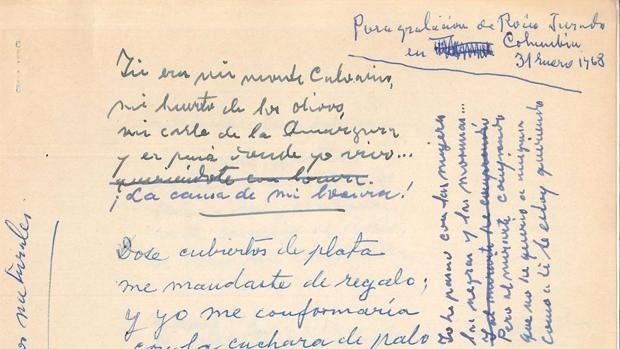 Para grabación de Rocío Jurado
en Columbia
31 Enero 1968
Tú era mi monte Calvario,
mi huerto de los olivos,
mi calle de la Amargura
y er donde yo vivo...
queriéndote con locura.
¡La causa de mi locura!
Dose cubiertos de plata
me mandaste de regalo;
y yo me conformaría
con la cuchara de palo
Yo he pasao con las mujeres
las negras y las
Pero al mirarte comprendo
que no he querío a ninguna
como a ti te estoy queriendo
naturales.